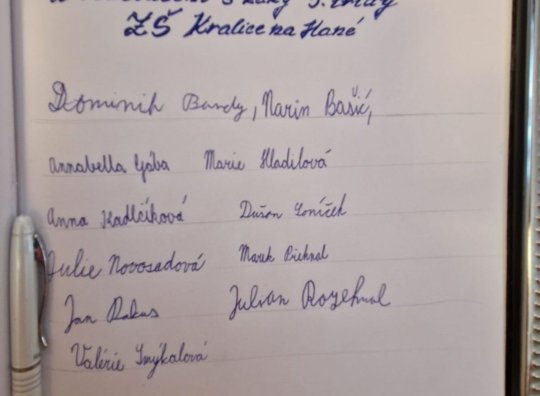 žáky 5. třídy
ZŠ Kralice na Hané
Dominik Bandy, Marin Bašić,
Annabella Gába Marie Hladilová
Anna Kadlčíková Dušan Loníček
Julie Novosadová Marek
Jan Rakus Julian Rozehnal
Valérie Smýkalová